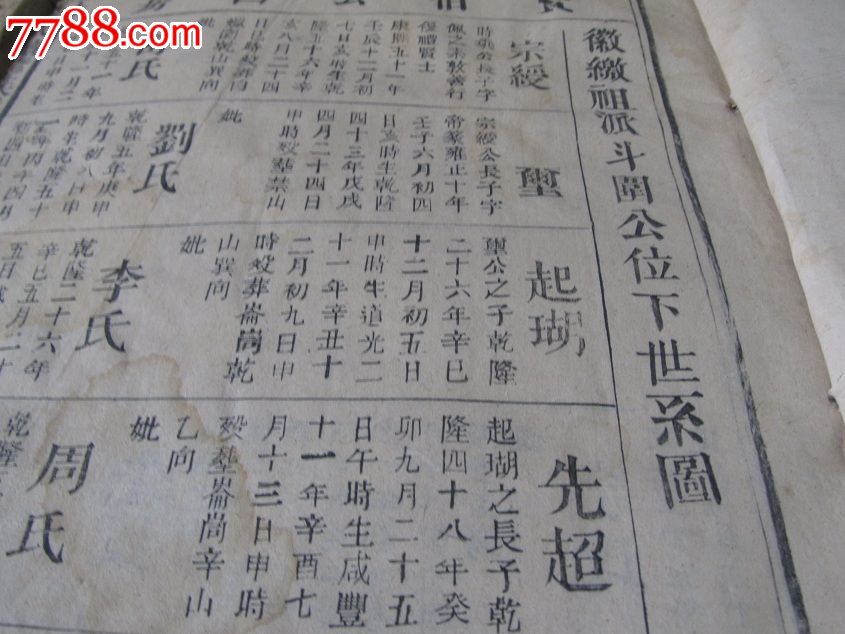 7788.com
中国收藏热线
徽繳祖派斗閏公位下世系圖
宗綬
時
公長子字
佩之
敦善行
復禮賢士
康熙五十一年
壬辰十二月初
七日亥時生乾
隆五十六年辛
亥八月二十四
日巳時歿
乾山巽向
氏
璽
宗綬公長子字
帝篆雍正十年
壬子六月初四
日亥時生乾隆
四十三年戊戌
四月二十四日
申時歿塟
山
妣
劉氏
乾隆五年庚申
九月初八日申
時生乾隆五十
起瑚
璽公之子乾隆
二十六年辛巳
十二月初五日
申時生道光二
十一年辛丑十
二月初九日申
時歿葬崙崗乾
山巽向
妣
李氏
乾隆二十六年
辛巳五月二十
五日戌
先超
起瑚之長子乾
隆四十八年癸
卯九月二十五
日午時生咸豐
十一年辛酉七
月十三日申時
歿塟崙崗辛山
乙向
妣
周氏
乾隆